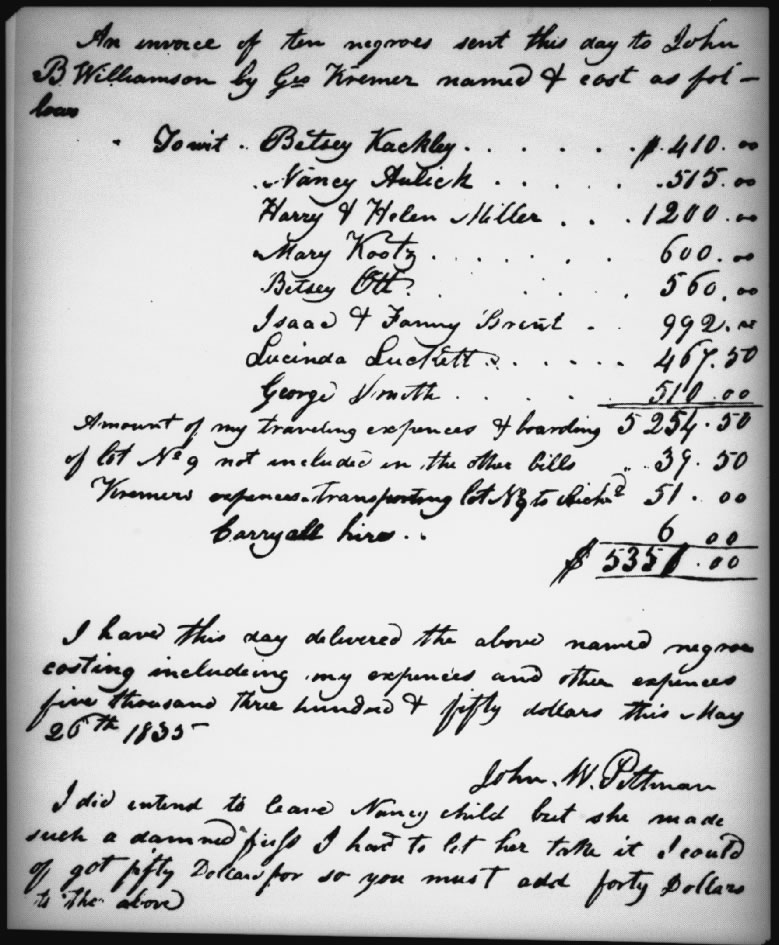 An invoice of ten negroes sent this day to John
B Williamson by Geo Kremer named & cost as fol-
lows
To wit . Betsey Kackley . . . . . . $ 410.00
Nancy Aulick . . . . . . 515.00
Harry & Helen Miller . . . 1200.00
Mary Kootz . . . . . . 600.00
Betsey Ott . . . . . . 560.00
Isaac & Fanny Brent . 992.00
Lucinda Luckett . . . . . 467.50
George Smith . . . . . . 510.00
Amount of my traveling expences & boarding 5254.50
of lot No 9 not included in the other bills .. 39.50
Kremers expences transporting lot No 9 to Richd 51.00
Carryall hire . . 6 00
$ 5351.00
I have this day delivered the above named negroes
costing includeing my expences and other expences
five thousand three hundred & fifty dollars this May
26th 1835
John. W. Pittman
I did intend to leave Nancy child but she made
such a damned fuss I had to let her take it I could
of got fifty Dollars for so you must add forty Dollars
to the above